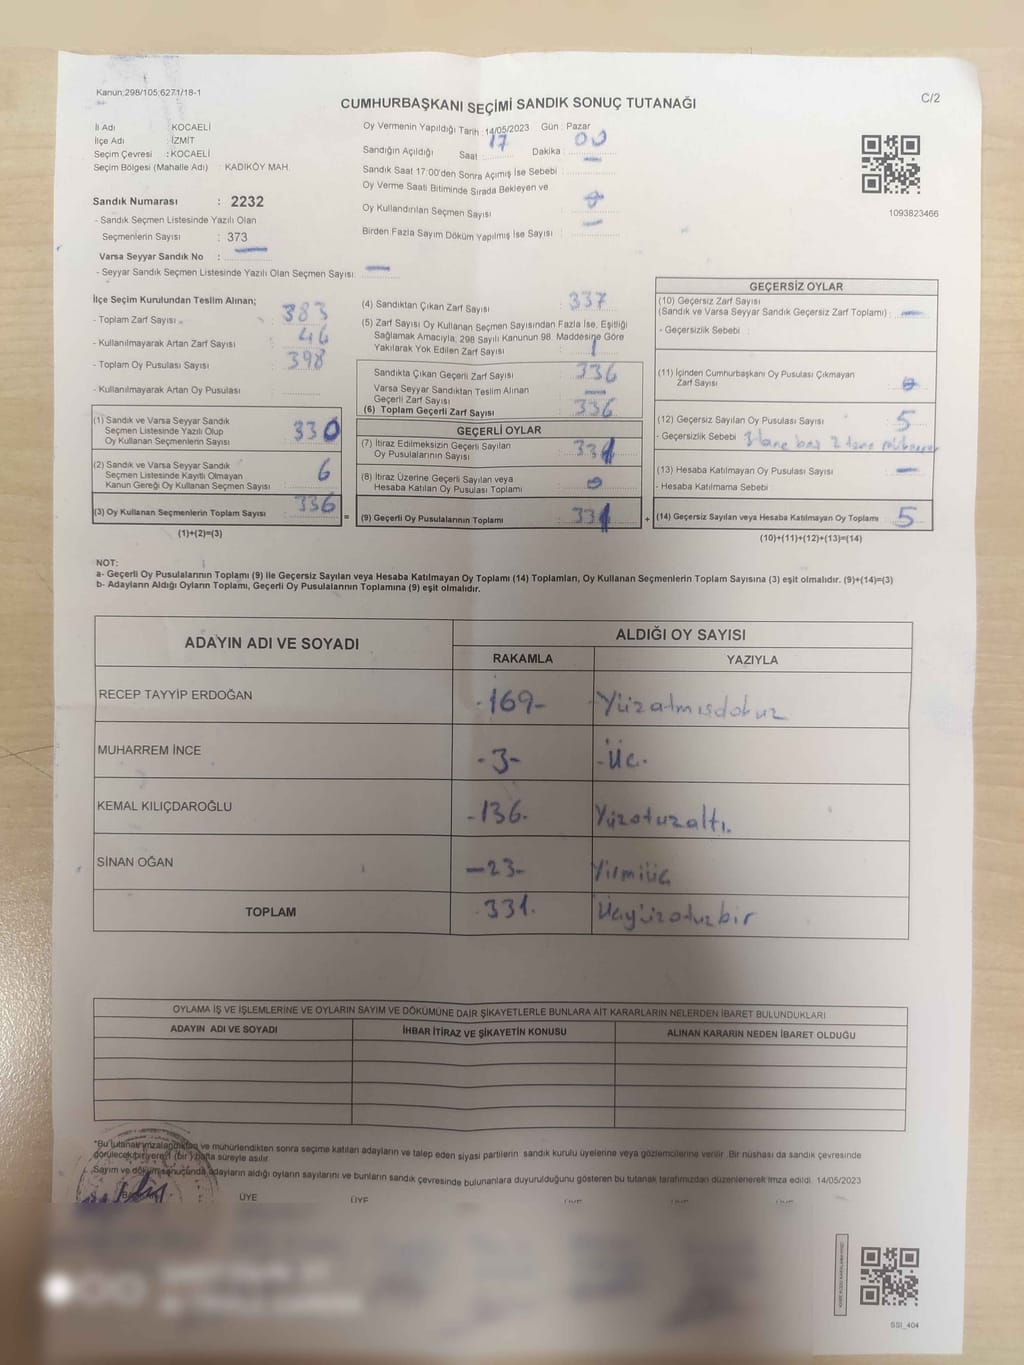 Kanun:298/105,6271/18-1
C/2
CUMHURBAŞKANI SEÇİMİ SANDIK SONUÇ TUTANAĞI
İl Adı : KOCAELİ
İlçe Adı : İZMİT
Seçim Çevresi : KOCAELİ
Seçim Bölgesi (Mahalle Adı) : KADIKÖY MAH.
Sandık Numarası : 2232
- Sandık Seçmen Listesinde Yazılı Olan
Seçmenlerin Sayısı : 373
Varsa Seyyar Sandık No : —
- Seyyar Sandık Seçmen Listesinde Yazılı Olan Seçmen Sayısı: —
Oy Vermenin Yapıldığı Tarih : 14/05/2023 Gün : Pazar
Sandığın Açıldığı Saat 17 Dakika : 00
Sandık Saat 17:00'den Sonra Açımış İse Sebebi : —
Oy Verme Saati Bitiminde Sırada Bekleyen ve
Oy Kullandırılan Seçmen Sayısı : 0
Birden Fazla Sayım Döküm Yapılmış İse Sayısı : —
1093823466
İlçe Seçim Kurulundan Teslim Alınan;
- Toplam Zarf Sayısı : 383
- Kullanılmayarak Artan Zarf Sayısı : 46
- Toplam Oy Pusulası Sayısı : 398
- Kullanılmayarak Artan Oy Pusulası
(1) Sandık ve Varsa Seyyar Sandık
Seçmen Listesinde Yazılı Olup
Oy Kullanan Seçmenlerin Sayısı : 330
(2) Sandık ve Varsa Seyyar Sandık
Seçmen Listesinde Kayıtlı Olmayan
Kanun Gereği Oy Kullanan Seçmen Sayısı : 6
(3) Oy Kullanan Seçmenlerin Toplam Sayısı : 336
(1)+(2)=(3)
(4) Sandıktan Çıkan Zarf Sayısı : 337
(5) Zarf Sayısı Oy Kullanan Seçmen Sayısından Fazla İse, Eşitliği
Sağlamak Amacıyla, 298 Sayılı Kanunun 98. Maddesine Göre
Yakılarak Yok Edilen Zarf Sayısı : 1
Sandıkta Çıkan Geçerli Zarf Sayısı : 336
Varsa Seyyar Sandıktan Teslim Alınan
Geçerli Zarf Sayısı : —
(6) Toplam Geçerli Zarf Sayısı : 336
GEÇERLİ OYLAR
(7) İtiraz Edilmeksizin Geçerli Sayılan
Oy Pusulalarının Sayısı : 331
(8) İtiraz Üzerine Geçerli Sayılan veya
Hesaba Katılan Oy Pusulası Toplamı : 0
= (9) Geçerli Oy Pusulalarının Toplamı : 331
GEÇERSİZ OYLAR
(10) Geçersiz Zarf Sayısı
(Sandık ve Varsa Seyyar Sandık Geçersiz Zarf Toplamı) : —
- Geçersizlik Sebebi :
(11) İçinden Cumhurbaşkanı Oy Pusulası Çıkmayan
Zarf Sayısı : 0
(12) Geçersiz Sayılan Oy Pusulası Sayısı : 5
- Geçersizlik Sebebi : 3 tane boş 2 tane
(13) Hesaba Katılmayan Oy Pusulası Sayısı : —
- Hesaba Katılmama Sebebi :
+ (14) Geçersiz Sayılan veya Hesaba Katılmayan Oy Toplamı : 5
(10)+(11)+(12)+(13)=(14)
NOT:
a- Geçerli Oy Pusulalarının Toplamı (9) ile Geçersiz Sayılan veya Hesaba Katılmayan Oy Toplamı (14) Toplamları, Oy Kullanan Seçmenlerin Toplam Sayısına (3) eşit olmalıdır. (9)+(14)=(3)
b- Adayların Aldığı Oyların Toplamı, Geçerli Oy Pusulalarının Toplamına (9) eşit olmalıdır.
ADAYIN ADI VE SOYADI ALDIĞI OY SAYISI
RAKAMLA YAZIYLA
RECEP TAYYİP ERDOĞAN -169- Yüzatmışdokuz
MUHARREM İNCE -3- -Üç-
KEMAL KILIÇDAROĞLU -136- Yüzotuzaltı.
SİNAN OĞAN -23- Yirmiüç
TOPLAM 331. Üçyüzotuzbir
OYLAMA İŞ VE İŞLEMLERİNE VE OYLARIN SAYIM VE DÖKÜMÜNE DAİR ŞİKAYETLERLE BUNLARA AİT KARARLARIN NELERDEN İBARET BULUNDUKLARI
ADAYIN ADI VE SOYADI İHBAR İTİRAZ VE ŞİKAYETİN KONUSU ALINAN KARARIN NEDEN İBARET OLDUĞU
*Bu tutanak imzalandıktan ve mühürlendikten sonra seçime katılan adayların ve talep eden siyasi partilerin sandık kurulu üyelerine veya gözlemcilerine verilir. Bir nüshası da sandık çevresinde
görülecek bir yere 1 (bir ) hafta süreyle asılır.
Sayım ve döküm sonucunda adayların aldığı oyların sayılarını ve bunların sandık çevresinde bulunanlara duyurulduğunu gösteren bu tutanak tarafımızdan düzenlenerek imza edildi. 14/05/2023
ÜYE ÜYE ÜYE ÜYE ÜYE
SSI_404